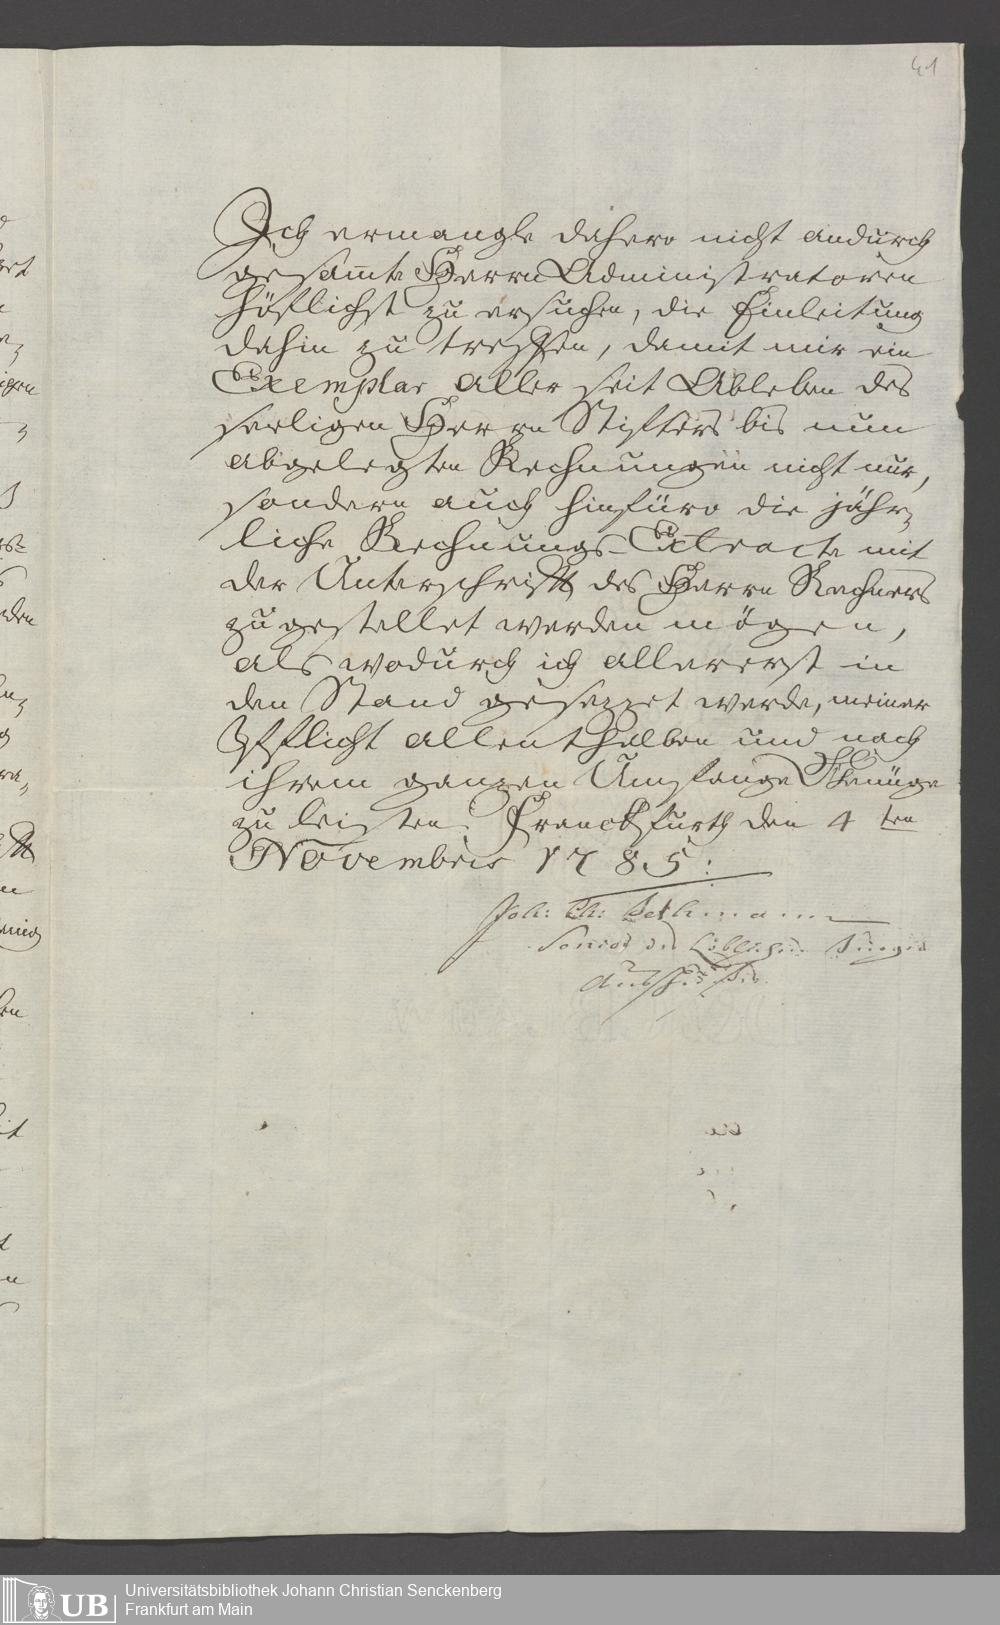 41
Ich ermangle dahero nicht andurch
gesamte Herrn Administratoren
höflichst zu ersuchen, die Einleitung
dahin zu treffen, damit mir ein
Exemplar aller seit Ableben des
seeligen Herrn Stifters bis nun
abgelegten Rechnungen nicht nur,
sondern auch hinfüro die jähr⸗
liche Rechnungs-Extracte mit
der Unterschrifft des Herrn Rechners
zugestellet werden mögen,
als wodurch ich allererst in
den Stand gesezzet werde, meiner
Pflicht allenthalben und nach
ihrem ganzen Umfange Genüge
zu leisten. Franckfurth den 4ten
Novembris 1785:
Joh: Ph: Bethmann
Senior des Löblichen Burger
Ausschusses
Universitätsbibliothek Johann Christian Senckenberg
Frankfurt am Main
UB